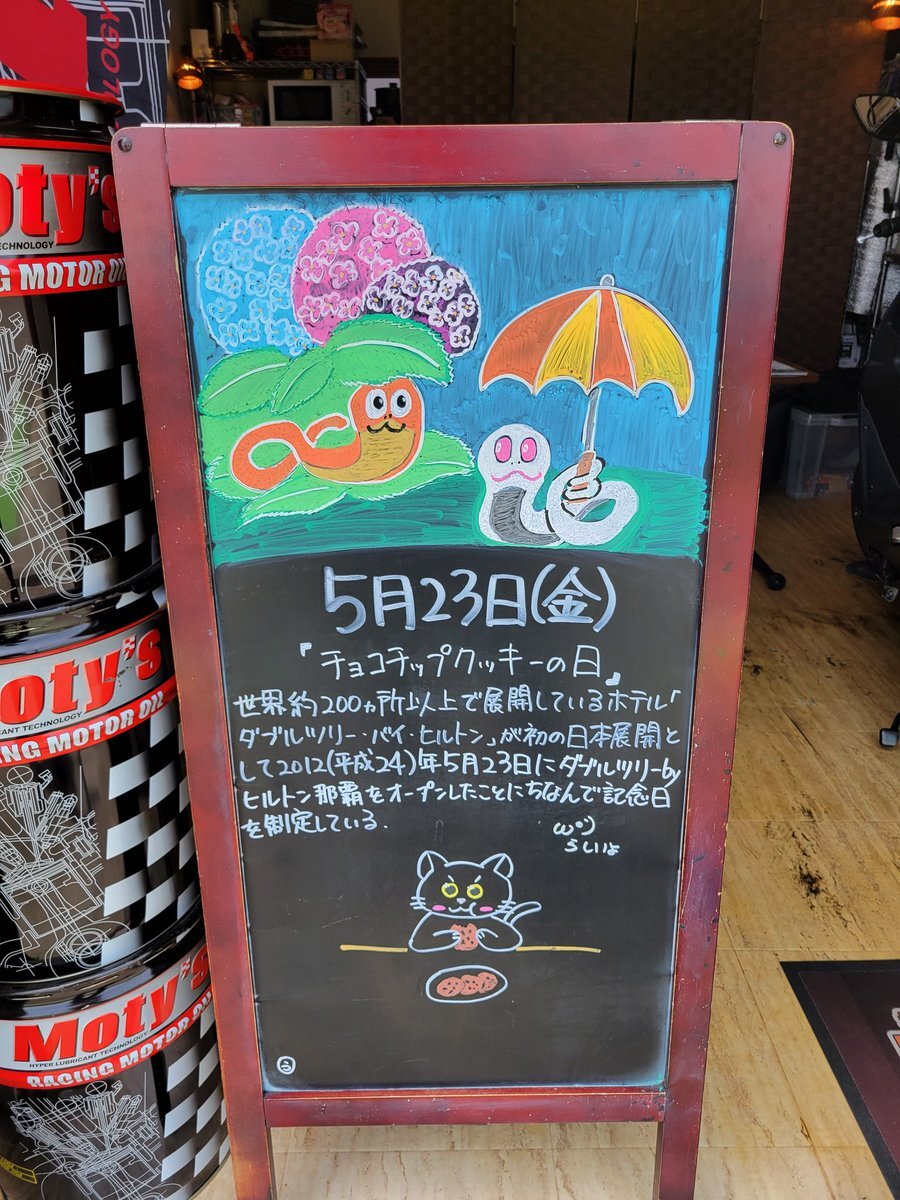 LOGY
oty's
TECHNOLOGY
NG MOTOR OIL
5月23日(金)
『チョコチップクッキーの日』
世界約200ヵ所以上で展開しているホテル「
ダブルツリー・バイ・ヒルトン」が初の日本展開と
して2012(平成24)年5月23日にダブルツリーby
ヒルトン那覇をオープンしたことにちなんで記念日
を制定している.
ω°)
らしいよ
う
oty's
ICANT TECHNOLOGY
ING MOTOR OIL
Moty's
HYPER LUBRICANT TECHNOLOGY
RACING MOTOR OIL